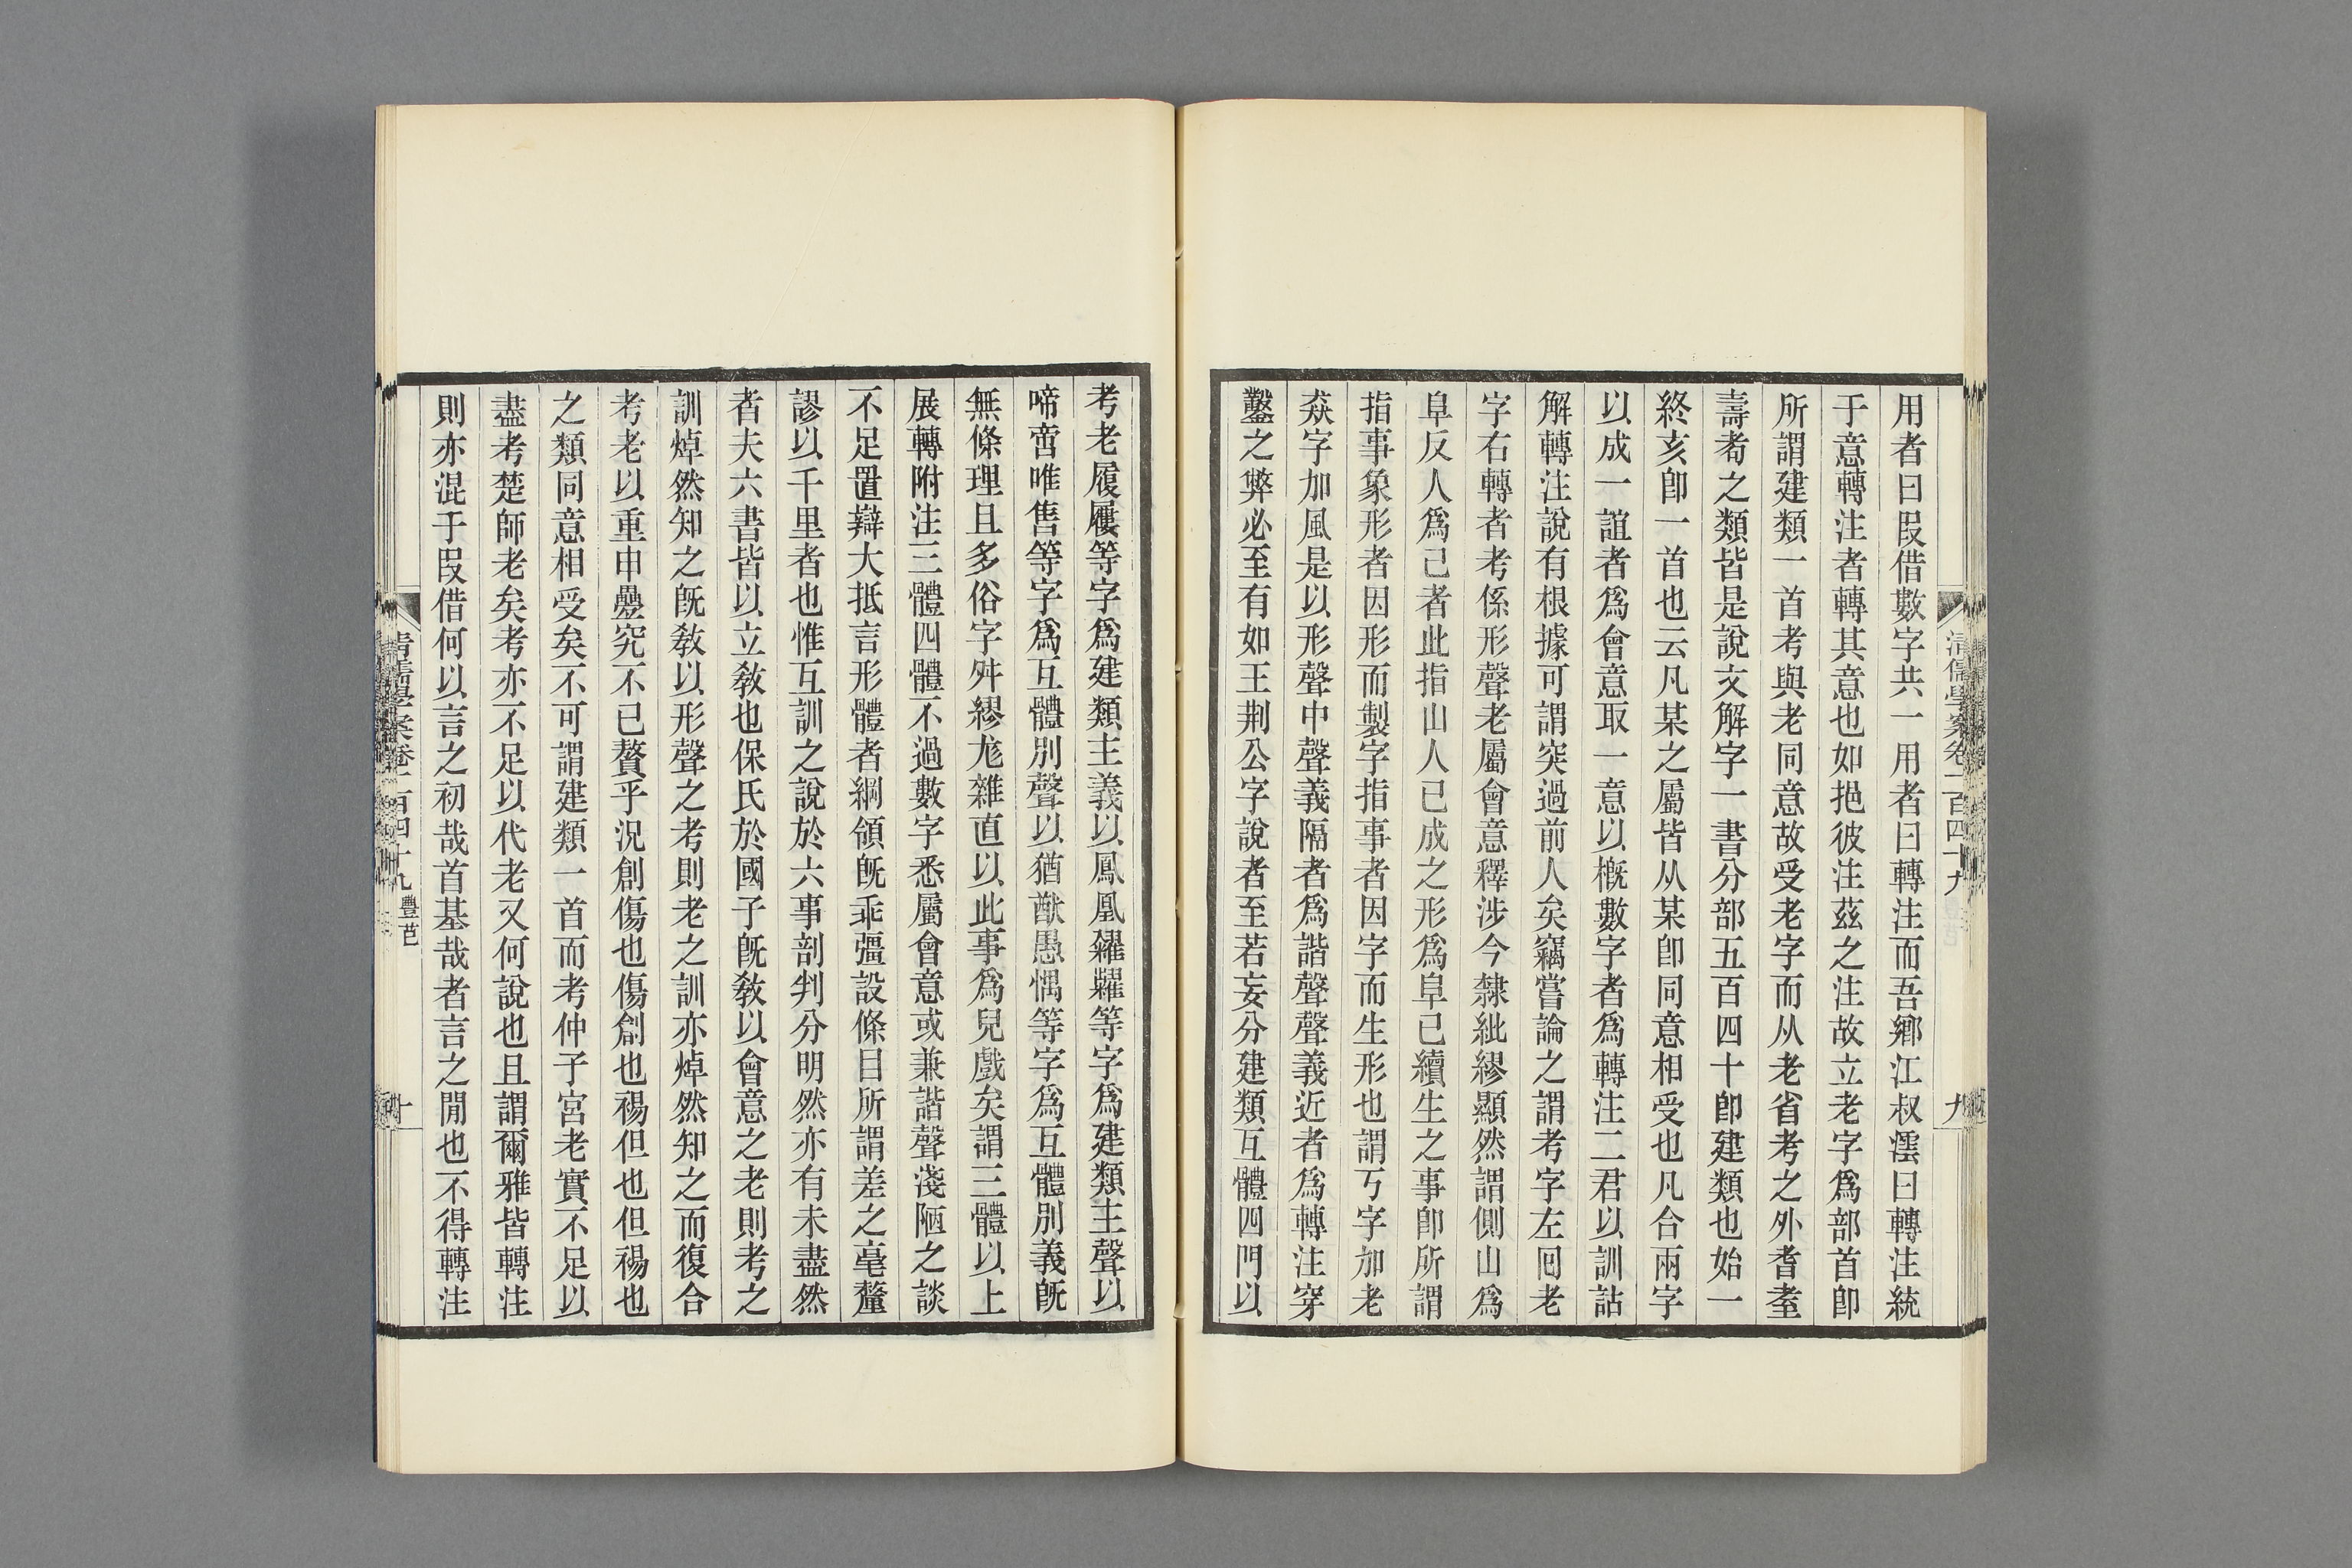 用者曰叚借數字共一用者曰轉注而吾鄉江叔澐曰轉注統
于意轉注者轉其意也如挹彼注茲之注故立老字爲部首卽
所謂建類一首考與老同意故受老字而从老省考之外耆耋
壽耇之類皆是說文解字一書分部五百四十卽建類也始一
終亥卽一首也云凡某之屬皆从某卽同意相受也凡合兩字
以成一誼者爲會意取一意以槪數字者爲轉注二君以訓詁
解轉注說有根據可謂突過前人矣竊嘗論之謂考字左回老
字右轉者考係形聲老屬會意釋涉今隸紕繆顯然謂側山爲
阜反人爲己者此指山人已成之形爲阜己續生之事卽所謂
指事象形者因形而製字指事者因字而生形也謂丂字加老
猋字加風是以形聲中聲義隔者爲諧聲聲義近者爲轉注穿
鑿之弊必至有如王荆公字說者至若妄分建類互體四門以
考老履屨等字爲建類主義以鳳凰糴糶等字爲建類主聲以
啼啻唯售等字爲互體別聲以猶猷愚愢等字爲互體別義旣
無條理且多俗字舛繆尨雜直以此事爲兒戲矣謂三體以上
展轉附注三體四體不過數字悉屬會意或兼諧聲淺陋之談
不足置辯大抵言形體者綱領旣乖彊設條目所謂差之毫釐
謬以千里者也惟互訓之說於六事剖判分明然亦有未盡然
者夫六書皆以立敎也保氏於國子旣敎以會意之老則考之
訓焯然知之旣敎以形聲之考則老之訓亦焯然知之而復合
考老以重申疊究不已贅乎況創傷也傷創也裼但也但裼也
之類同意相受矣不可謂建類一首而考仲子宮老實不足以
盡考楚師老矣考亦不足以代老又何說也且謂爾雅皆轉注
則亦混于叚借何以言之初哉首基哉者言之閒也不得轉注
清儒學案卷一百四十九
九
清儒學案卷一百四十九 豐芑
十